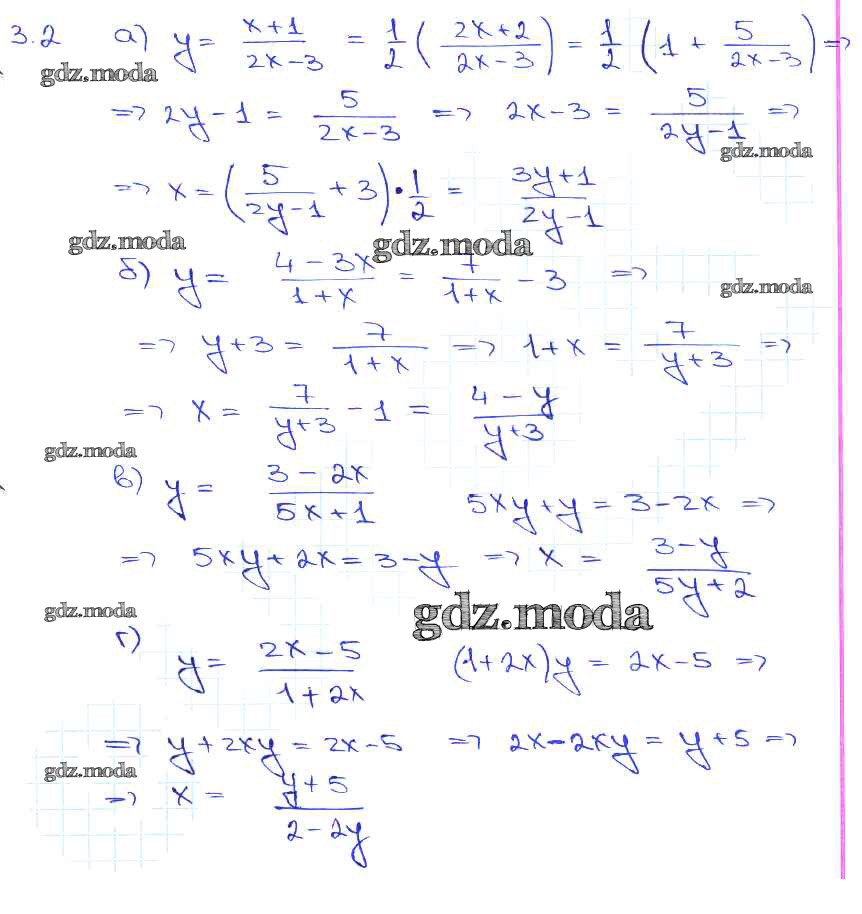 3.2 а) y = (x+1)/(2x-3) = 1/2 ((2x+2)/(2x-3)) = 1/2 (1 + 5/(2x-3)) =>
gdz.moda
=> 2y-1 = 5/(2x-3) => 2x-3 = 5/(2y-1) =>
gdz.moda
=> x = (5/(2y-1) + 3) · 1/2 = (3y+1)/(2y-1)
gdz.moda gdz.moda
б) y = (4-3x)/(1+x) = 7/(1+x) - 3 =>
gdz.moda
=> y+3 = 7/(1+x) => 1+x = 7/(y+3) =>
=> x = 7/(y+3) - 1 = (4-y)/(y+3)
gdz.moda
в) y = (3-2x)/(5x+1) 5xy+y = 3-2x =>
=> 5xy+2x = 3-y => x = (3-y)/(5y+2)
gdz.moda gdz.moda
г) y = (2x-5)/(1+2x) (1+2x)y = 2x-5 =>
=> y+2xy = 2x-5 => 2x-2xy = y+5 =>
gdz.moda
=> x = (y+5)/(2-2y)